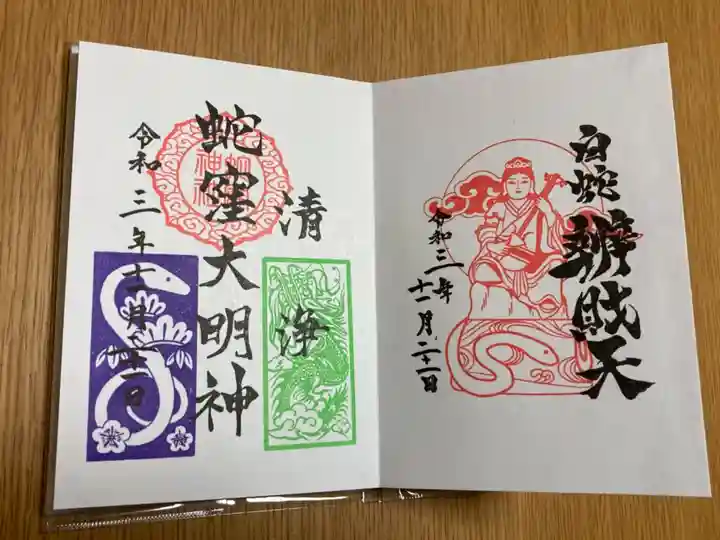 白蛇
辨財天
令和三年
十一月二十一日
清浄
蛇窪大明神
蛇窪神社
令和三年十一月二十一日